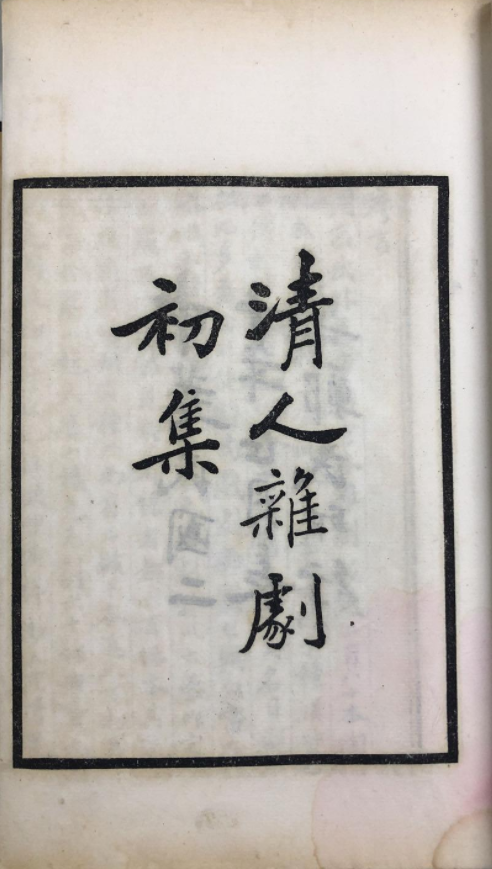 清人雜劇
初集